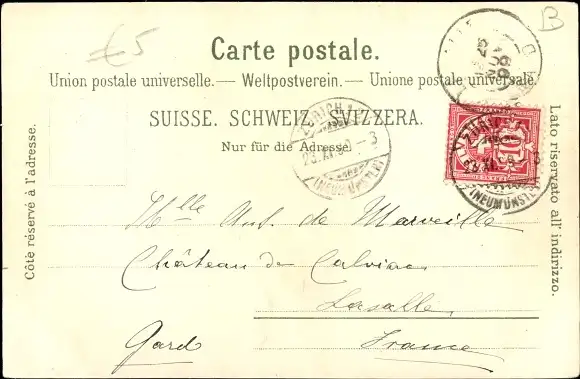 €5
B
Carte postale.
Union postale universelle. — Weltpostverein. — Unione postale universale.
SUISSE. SCHWEIZ. SVIZZERA.
Nur für die Adresse.
Côté réservé à l'adresse.
Lato riservato all' indirizzo.
ZÜRICH
(NEUMÜNSTER)
10
(NEUMÜNSTER)
Mlle Ant. de Marveille
Château de Calviac
Lasalle
Gard France